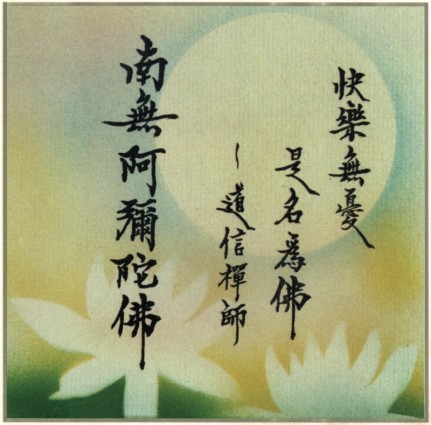 快樂無憂
是名爲佛
~道信禪師
南無阿彌陀佛